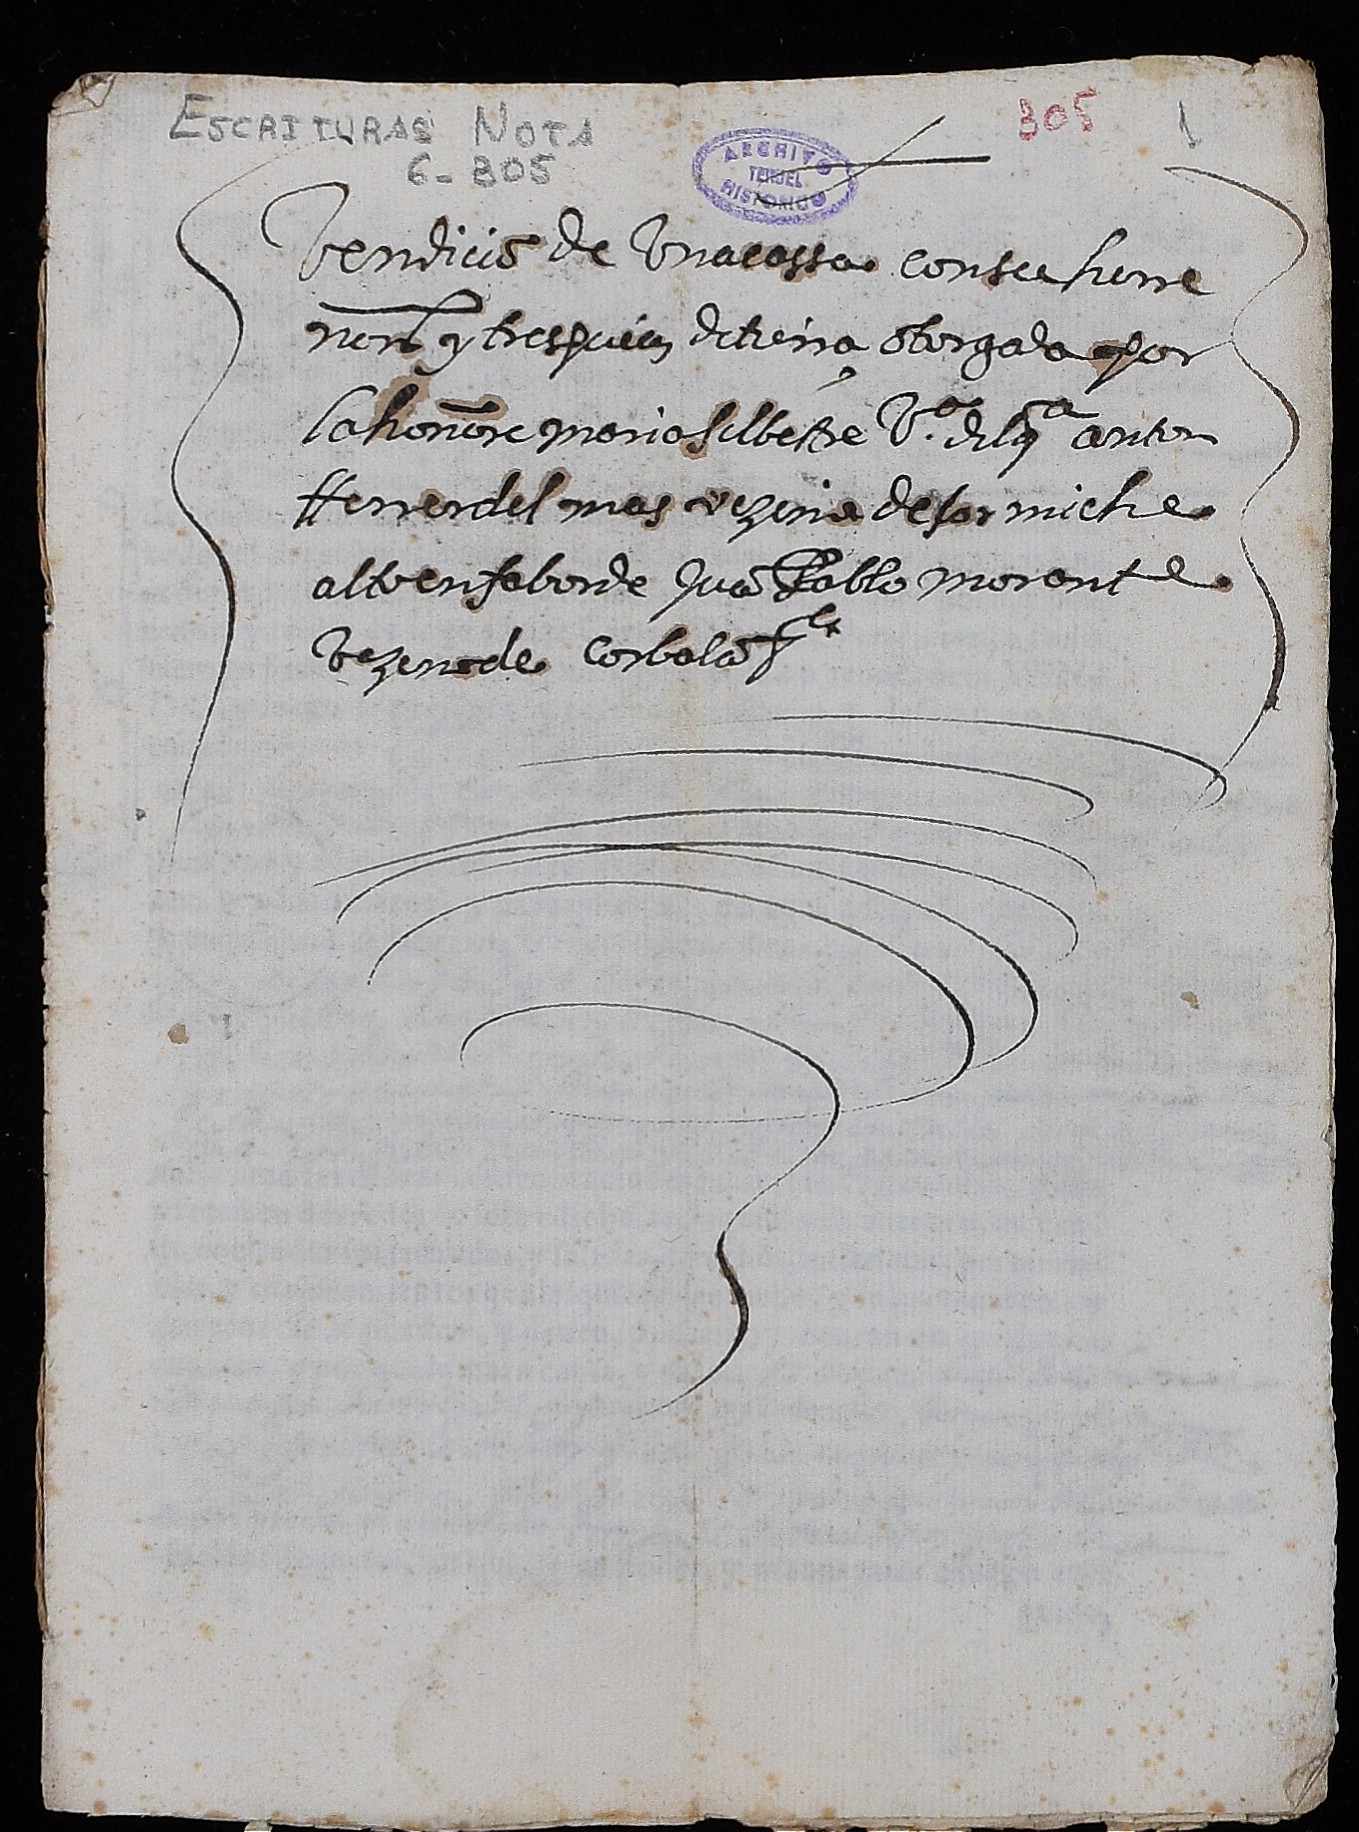 ESCRITURAS NOTA
6-305
305
1
ARCHIVO
TERUEL
HISTORICO
Vendiciõ de Vna cassa con su herre
nal y tres pieças de tierra otorgada por
la honõre maria silbestre Vª. del qº anton
Herrer del mas vezina de formiche
alto en fabor de Juã Pablo morante
Vezino de Corbalã